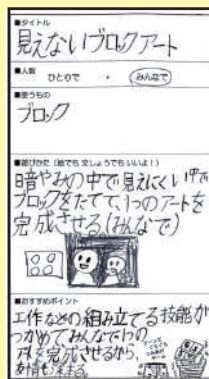 ■タイトル
見えないブロックアート
■人数
ひとりで ・ みんなで
■使うもの
ブロック
■遊びかた(絵でも文しょうでもいいよ!)
暗やみの中で見えにくい中で
ブロックをたてて、1つのアートを
完成させる(みんなで)
■おすすめポイント
工作などの組み立てる技能が
つかめてみんなで1つの
を完成させるから、
友情も深まる。